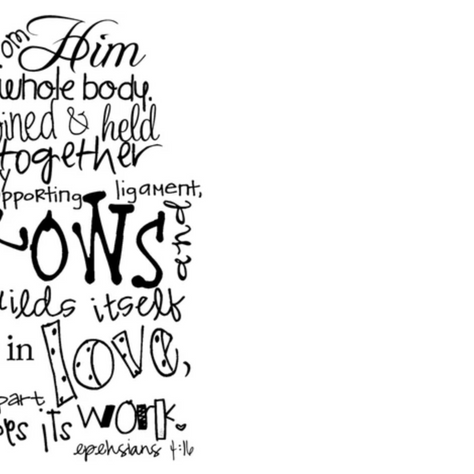 om Him
whole body,
ined & held
together
y
pporting ligament,
ows and
uilds itself
in love,
part
oes its work.
epehsians 4:16